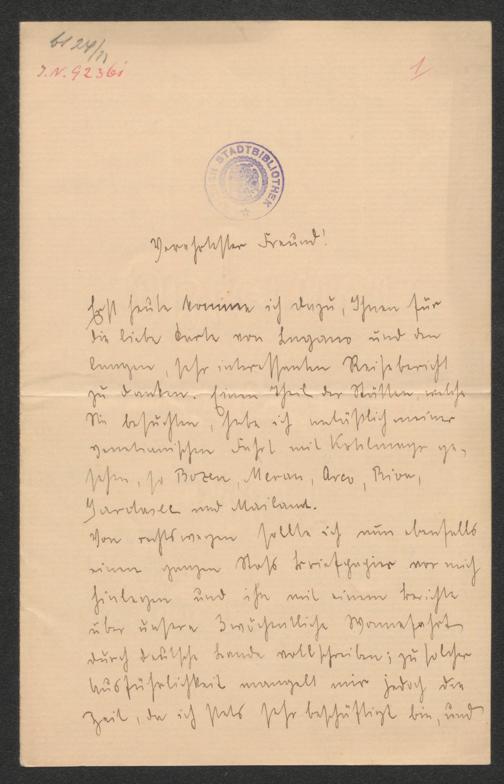 bl 24/11
J.N. 92361
1
STADTBIBLIOTHEK
Verehrtester Freund!
Erst heute komme ich dazu, Ihnen für
die liebe Karte von Lugano und den
langen, sehr interessanten Reisebericht
zu danken. Einen Theil der Stätten, welche
Sie besuchten, habe ich anläßlich meiner
venetianischen Fahrt mit Kohlmayr ge-
sehen, so Bozen, Meran, Arco, Riva,
Gardasee und Mailand.
Von rechtswegen sollte ich nun ebenfalls
einen ganzen Stoß Briefpapier vor mich
hinlegen und ihn mit einem Berichte
über unsere 3wöchentliche Wonnefahrt
durch deutsche Lande vollschreiben; zu solcher
Ausführlichkeit mangelt mir jedoch die
Zeit, da ich stets sehr beschäftigt bin, und